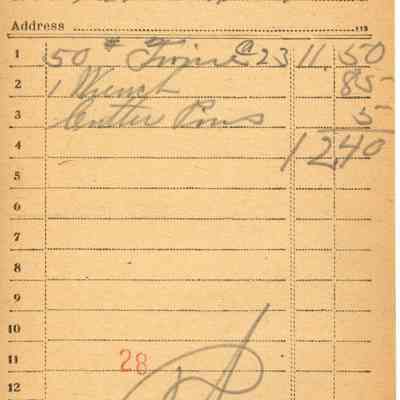 Address
1 50 # Twine @ 23 11 50
2 1 Wrench 85
3 Cotter Pins 5
4 12 40
5
6
7
8
9
10
11 28
12